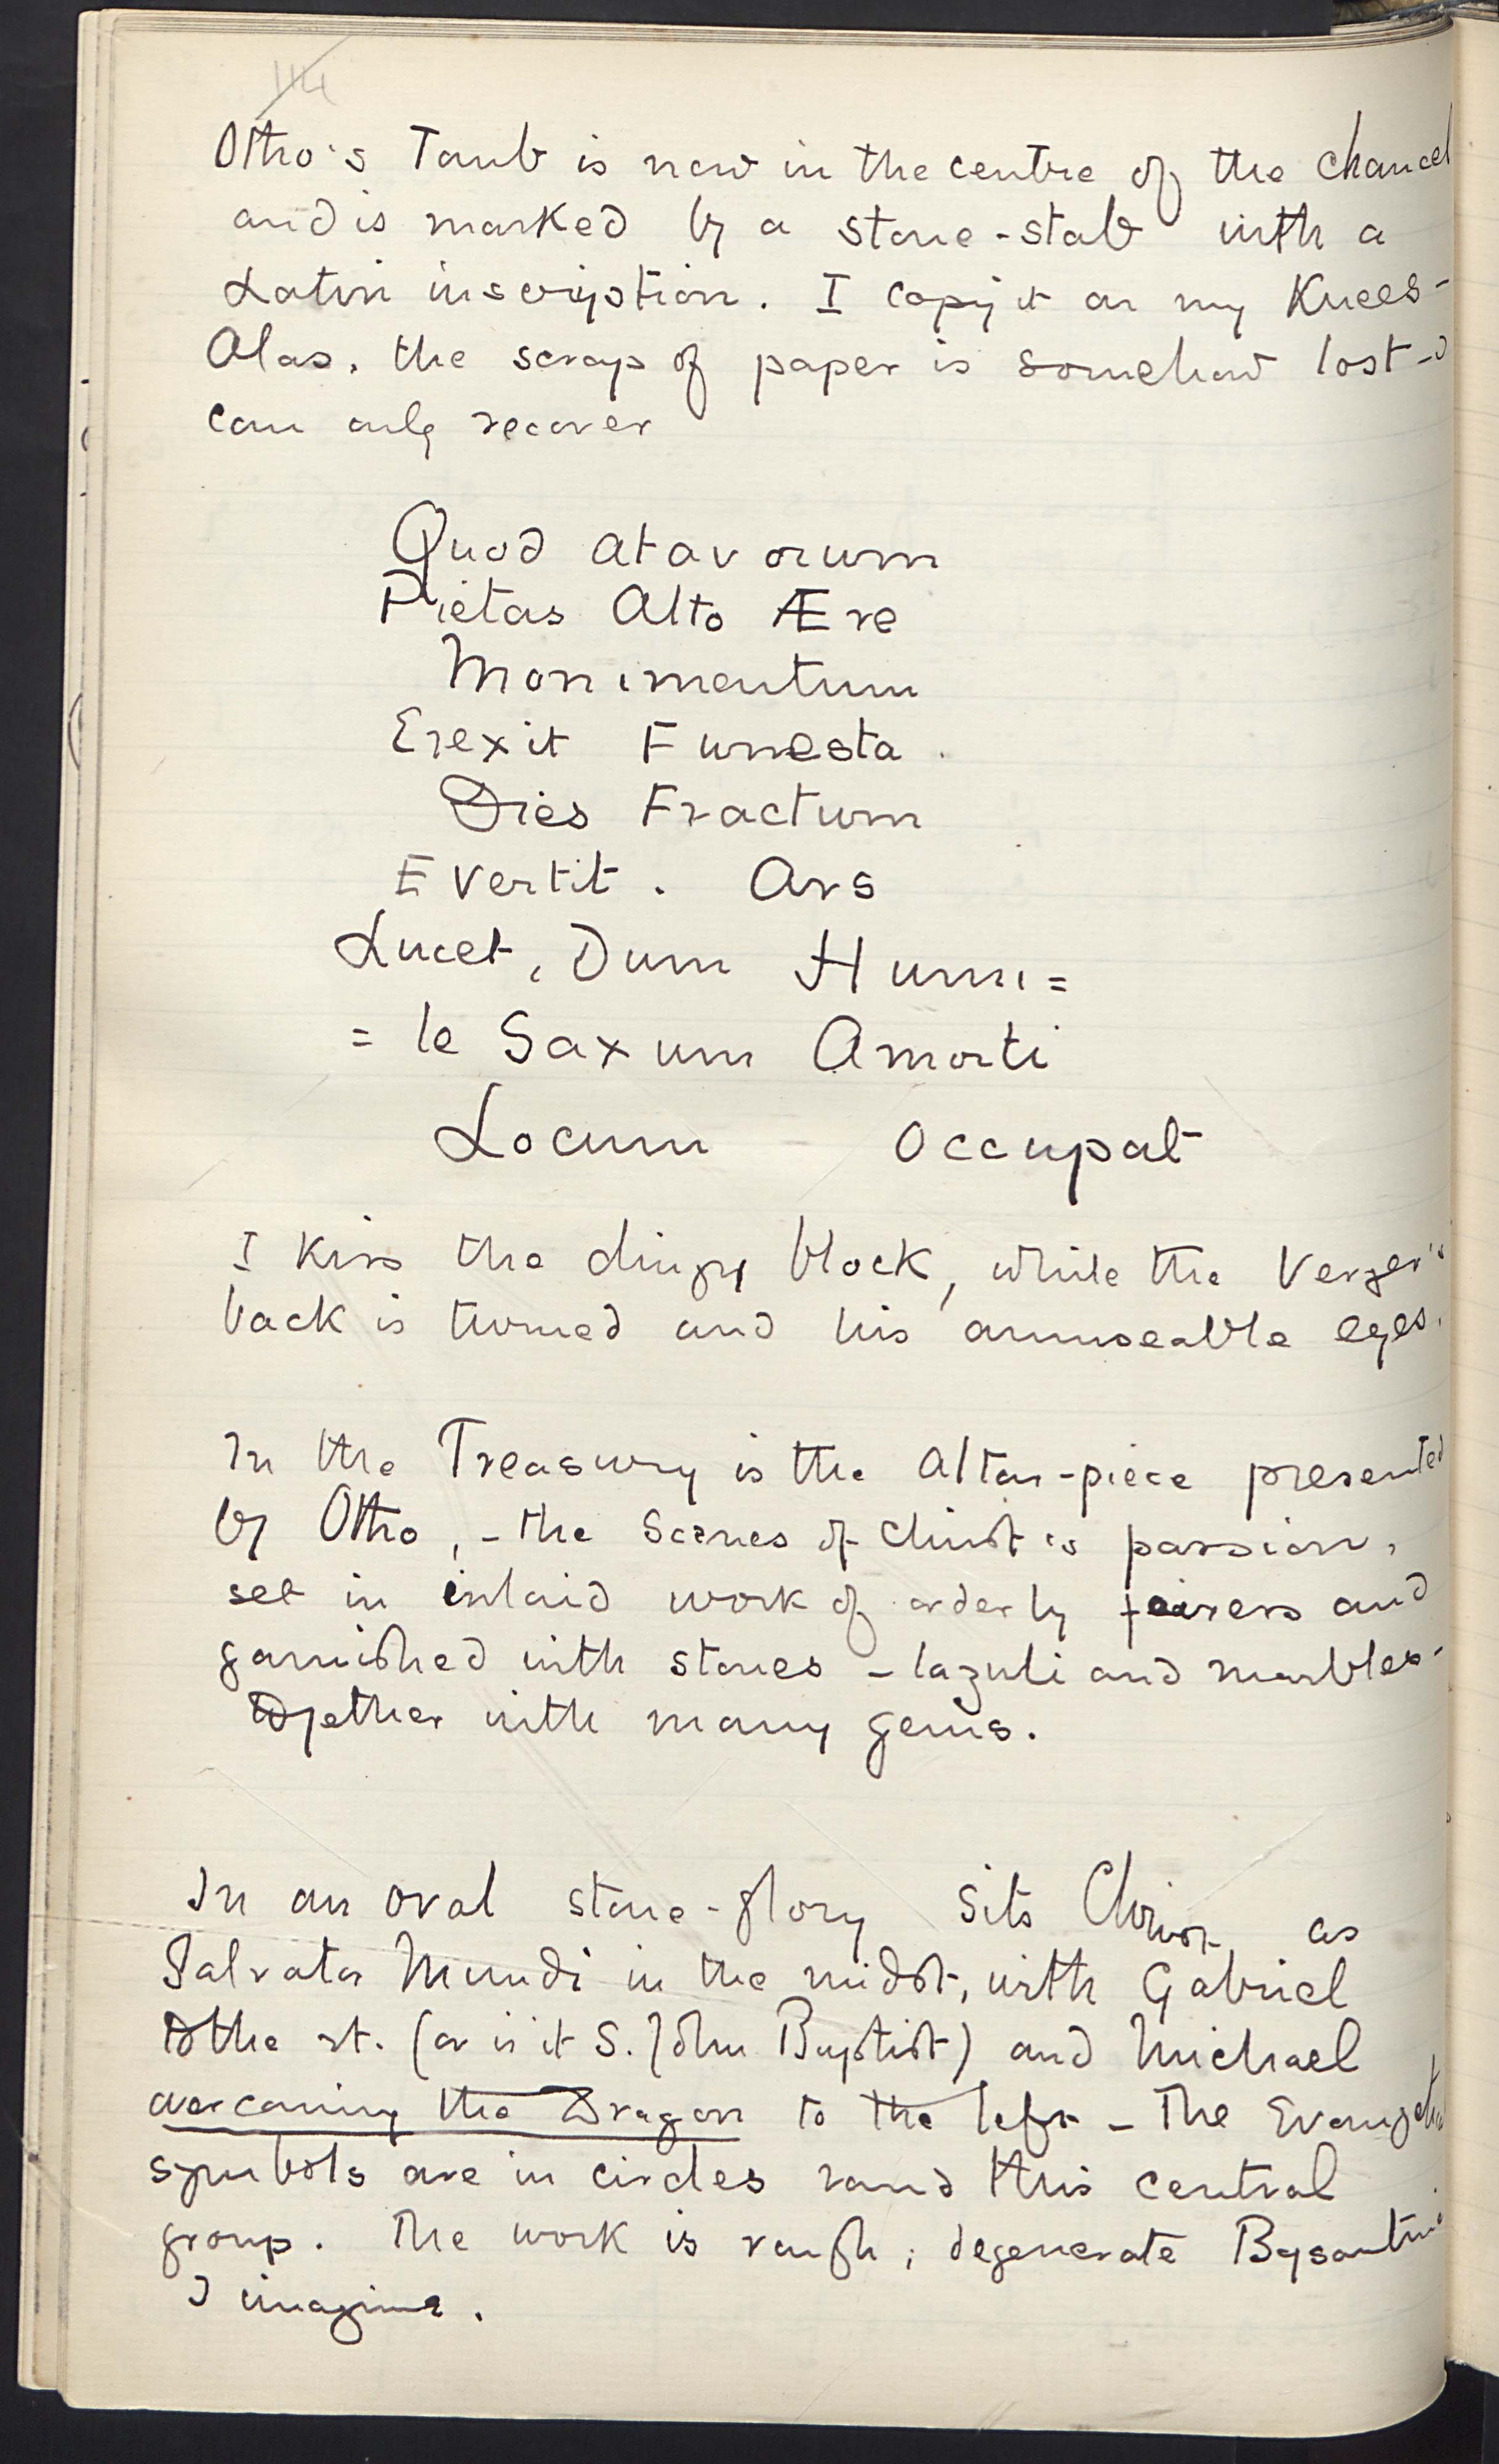 114
Otho's Tomb is now in the centre of the chancel
and is marked by a stone-slab with a
Latin inscription. I copy it on my Knees -
Alas, the scrap of paper is somehow lost - I
can only recover
Quod atavorum
Pietas Alto Ære
Monimentum
Erexit Funesta.
Dies Fractum
Evertit. Ars
Lucet, Dum Humi=
= le Saxum Amorti
Locum Occupat
I Kiss the dingy block, while the Verger's
back is turned and his amuseable eyes.
In the Treasury is the Altar-piece presented
by Otho, - the Scenes of Christ's passion,
set in inlaid work of orderly and
garnished with stones - lazuli and marbles -
together with many gems.
In an oval stone-glory Sits Christ as
Salvator Mundi in the midst, with Gabriel
to the rt. (or is it S. John Baptist) and Michael
overcoming the Dragon to the left - The
symbols are in circles round this central
group. The work is rough; degenerate
I imagine.